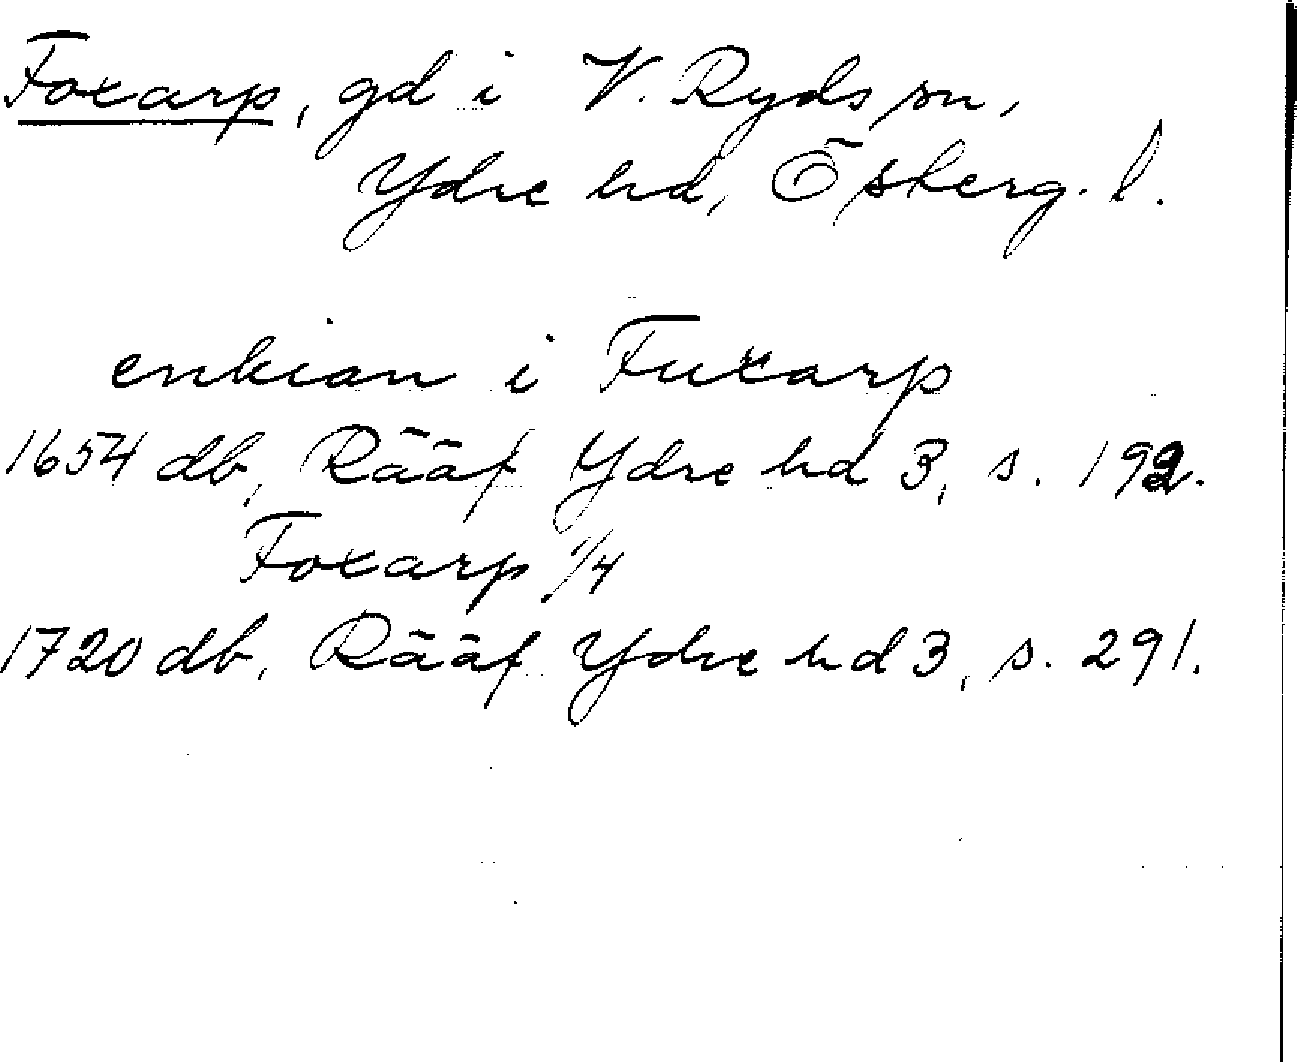 Foxarp, gd i V. Ryds sn,
Ydre hd, Österg. l.
enkian i Fuxarp
1654 db, Rääf Ydre hd 3, s. 192.
Foxarp 1/4
1720 db, Rääf Ydre hd 3, s. 291.